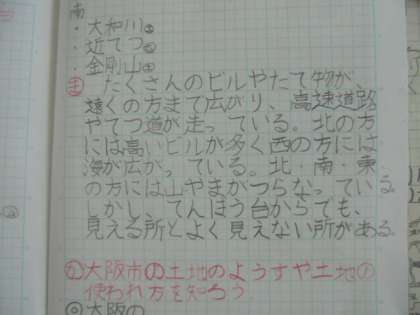 南
・大和川
・近てつ
・金剛山
ま たくさんのビルやたて物が、
遠くの方まで広がり、高速道路
やてつ道が走っている。北の方
には高いビルが多く西の方には
海が広がっている。北・南・東
の方には山やまがつらなっている
しかし、てんぼう台からでも、
見える所とよく見えない所がある。
か 大阪市の土地のようすや土地の
使われ方を知ろう
大阪の